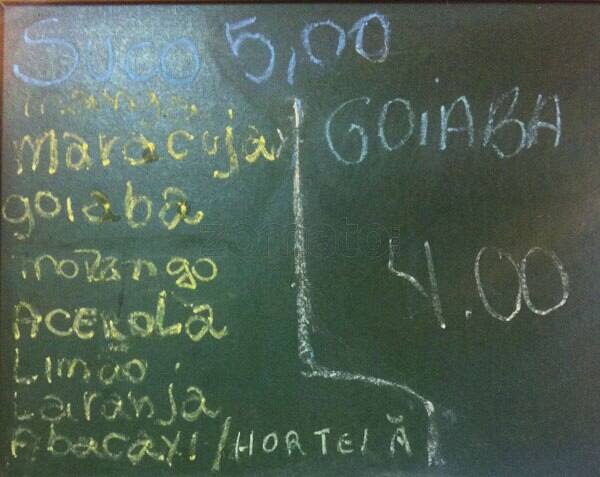 Suco 5,00
manga
maracuja
goiaba
morango
ACEROLA
Limão
Laranja
Abacaxi / HORTELÃ
GOiABA
4.00
zomato